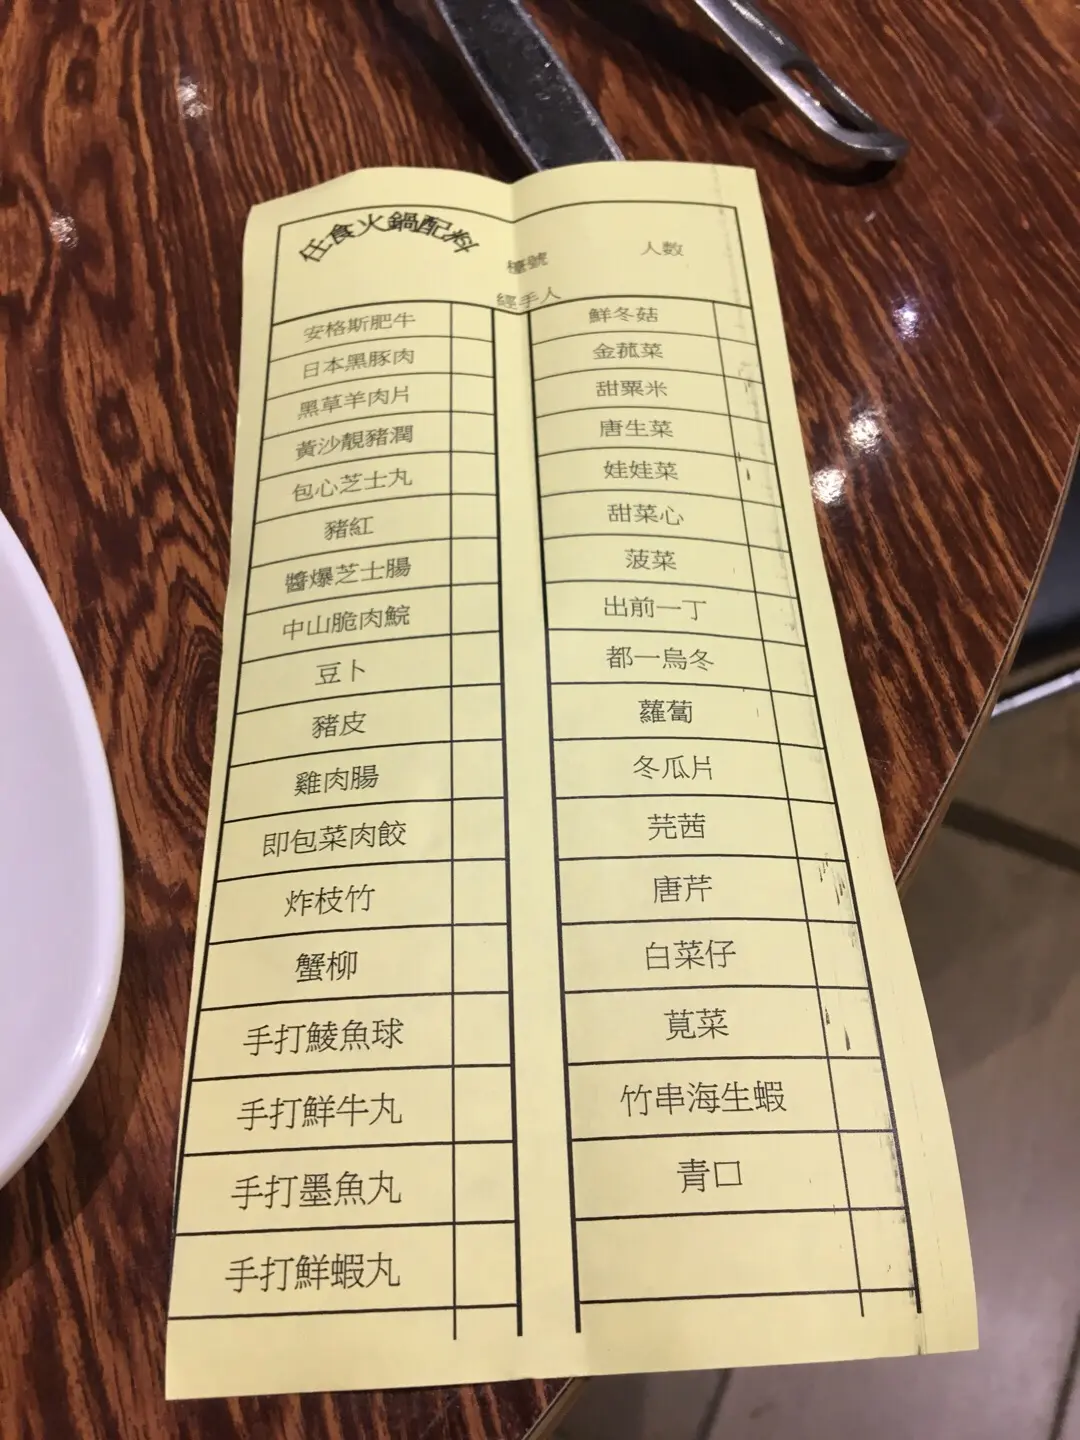 任食火鍋配料
檯號
人數
經手人
安格斯肥牛
日本黑豚肉
黑草羊肉片
黃沙靚豬潤
包心芝士丸
豬紅
醬爆芝士腸
中山脆肉鯇
豆卜
豬皮
雞肉腸
即包菜肉餃
炸枝竹
蟹柳
手打鯪魚球
手打鮮牛丸
手打墨魚丸
手打鮮蝦丸
鮮冬菇
金菰菜
甜粟米
唐生菜
娃娃菜
甜菜心
菠菜
出前一丁
都一烏冬
蘿蔔
冬瓜片
芫茜
唐芹
白菜仔
莧菜
竹串海生蝦
青口